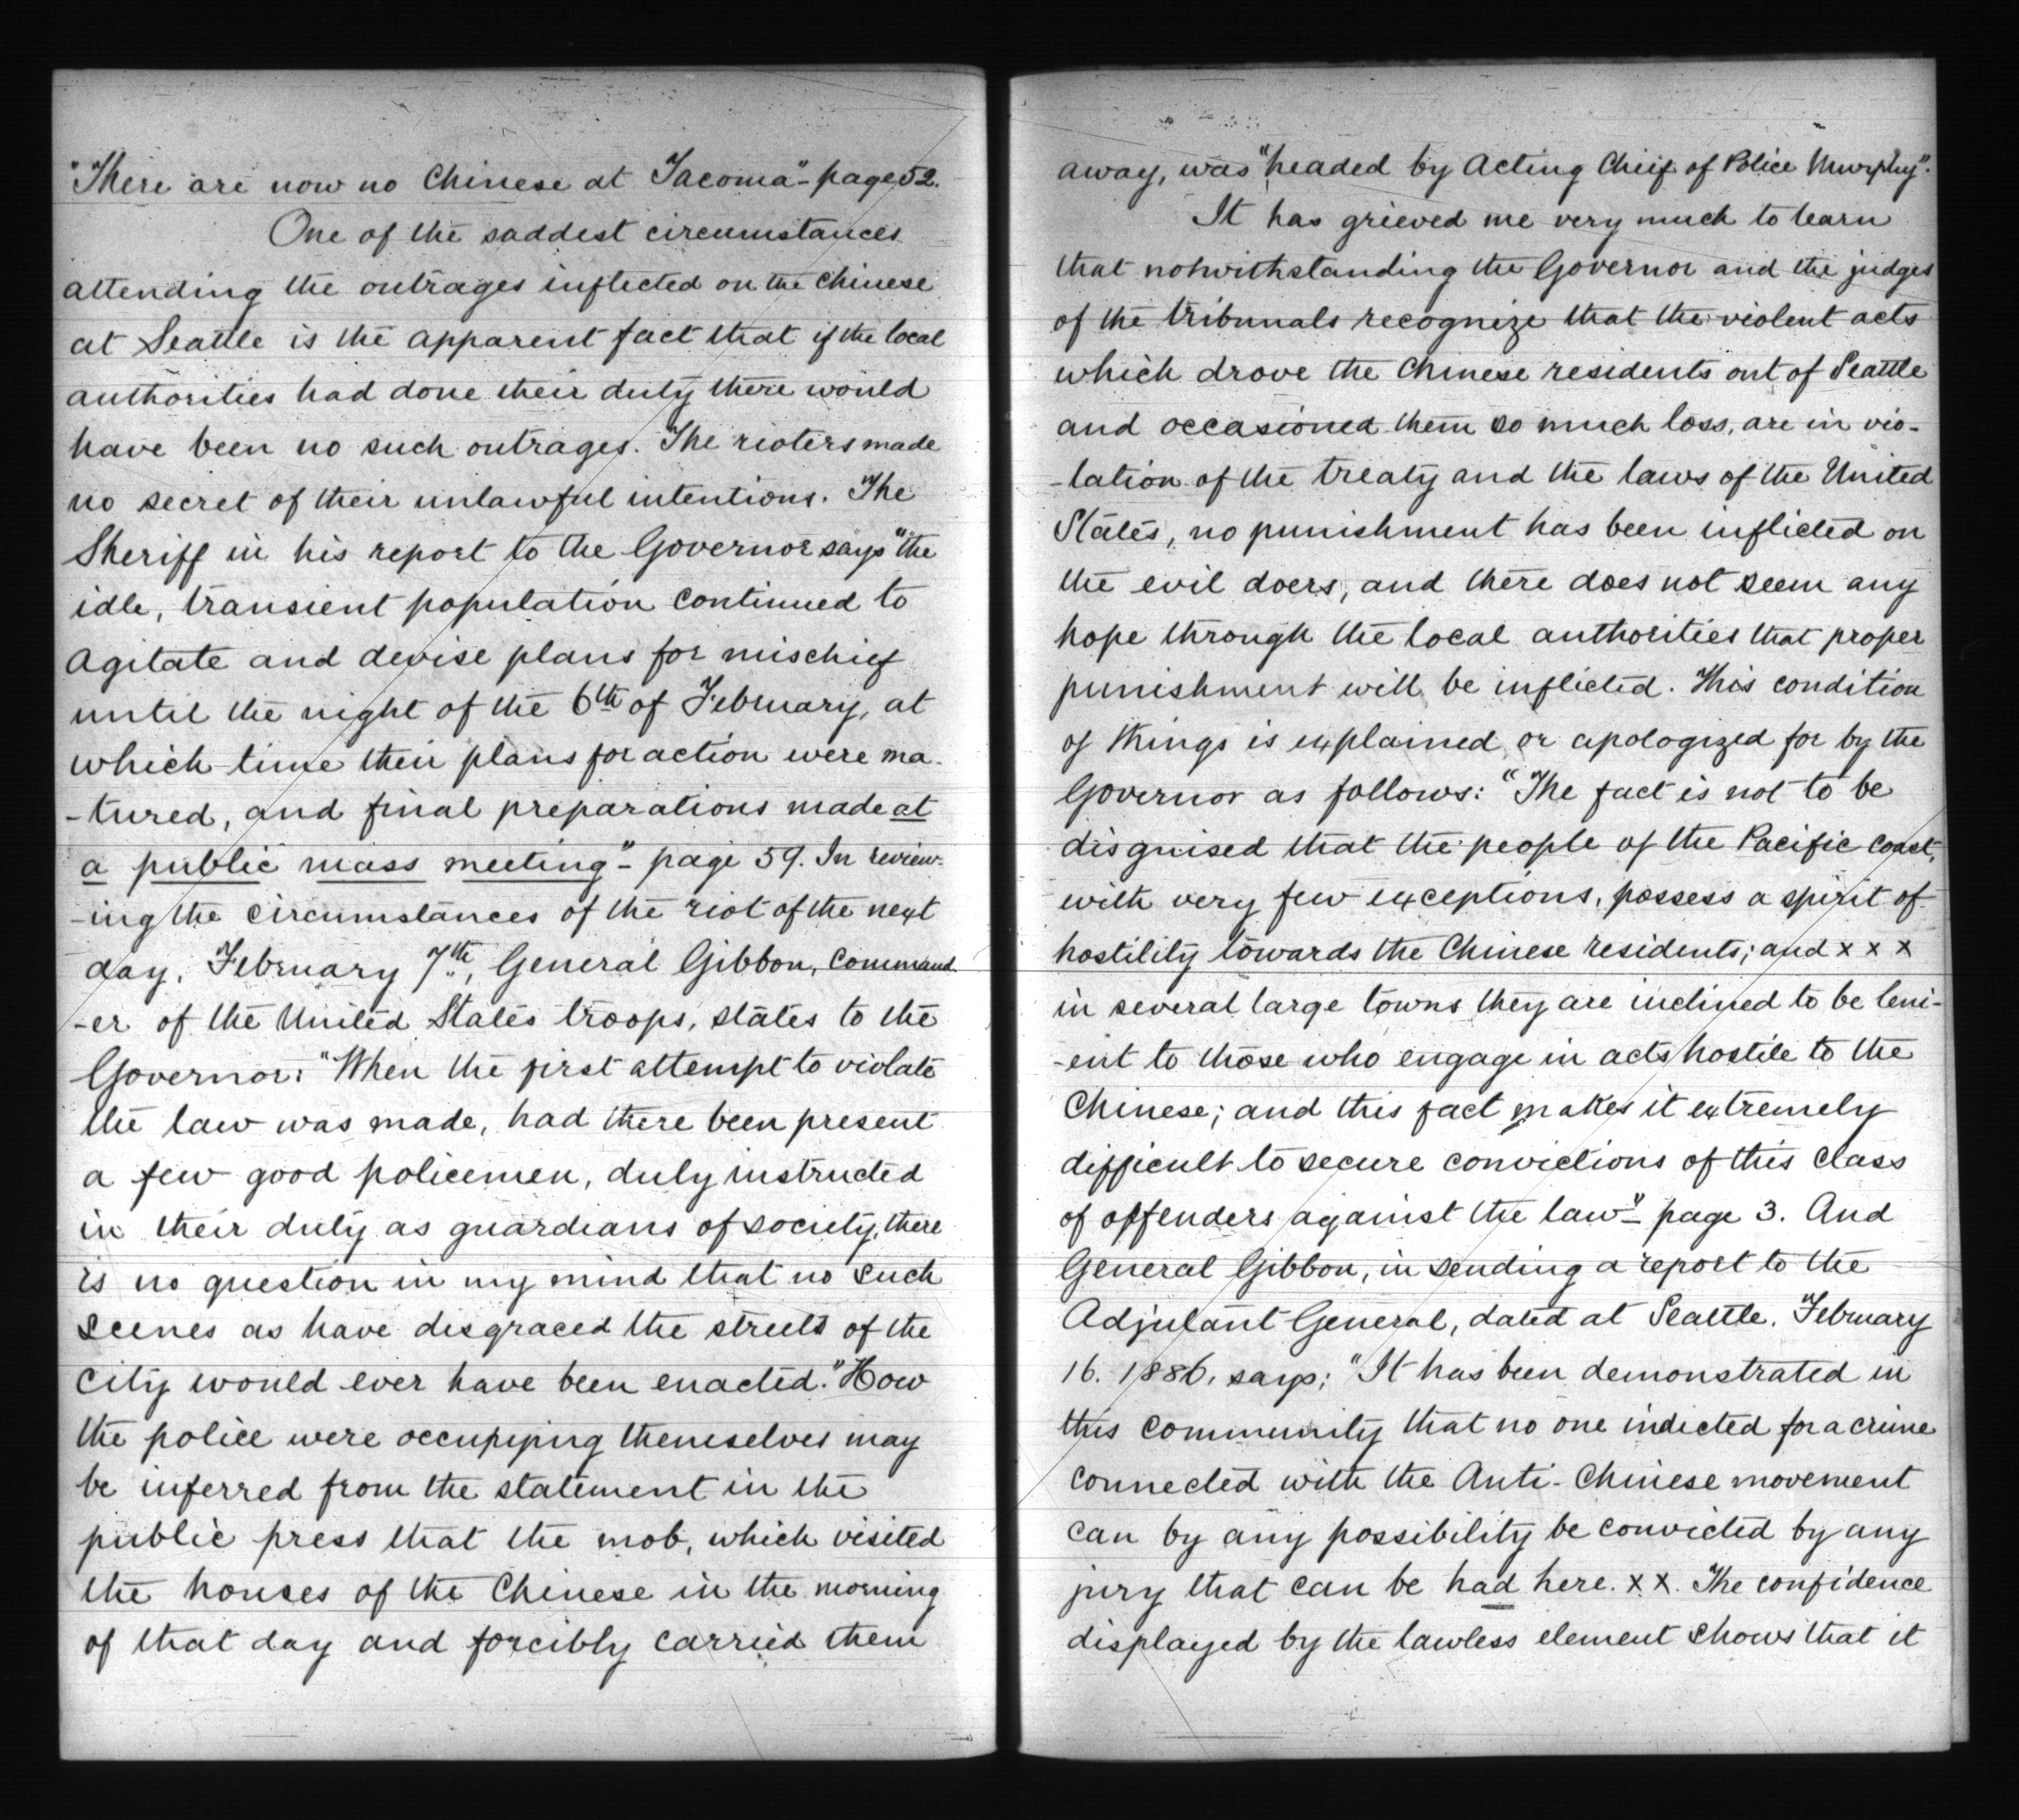 "There are now no Chinese at Tacoma"- page 52.
One of the saddest circumstances
attending the outrages inflicted on the Chinese
at Seattle is the apparent fact that if the local
authorities had done their duty there would
have been no such outrages. The rioters made
no secret of their unlawful intentions. The
Sheriff in his report to the Governor says "the
idle, transient population continued to
agitate and devise plans for mischief
until the night of the 6th of February, at
which time their plans for action were ma-
-tured, and final preparations made at
a public mass meeting"- page 59. In review-
-ing the circumstances of the riot of the next
day, February 7th, General Gibbon, command
-er of the United States troops, states to the
Governor: "When the first attempt to violate
the law was made, had there been present
a few good policemen, duly instructed
in their duty as guardians of society, there
is no question in my mind that no such
scenes as have disgraced the streets of the
city would ever have been enacted." How
the police were occupying themselves may
be inferred from the statement in the
public press that the mob, which visited
the houses of the Chinese in the morning
of that day and forcibly carried them
away, was "headed by Acting Chief of Police Murphy".
It has grieved me very much to learn
that notwithstanding the Governor and the judges
of the tribunals recognize that the violent acts
which drove the Chinese residents out of Seattle
and occasioned them so much loss, are in vio-
-lation of the treaty and the laws of the United
States, no punishment has been inflicted on
the evil doers, and there does not seem any
hope through the local authorities that proper
punishment will be inflicted. This condition
of things is explained or apologized for by the
Governor as follows: "The fact is not to be
disguised that the people of the Pacific coast,
with very few exceptions, possess a spirit of
hostility towards the Chinese residents; and x x x
in several large towns they are inclined to be leni-
-ent to those who engage in acts hostile to the
Chinese; and this fact makes it extremely
difficult to secure convictions of this class
of offenders against the law"- page 3. And
General Gibbon, in sending a report to the
Adjutant General, dated at Seattle, February
16. 1886, says: "It has been demonstrated in
this community that no one indicted for a crime
connected with the Anti-Chinese movement
can by any possibility be convicted by any
jury that can be had here. x x. The confidence
displayed by the lawless element shows that it